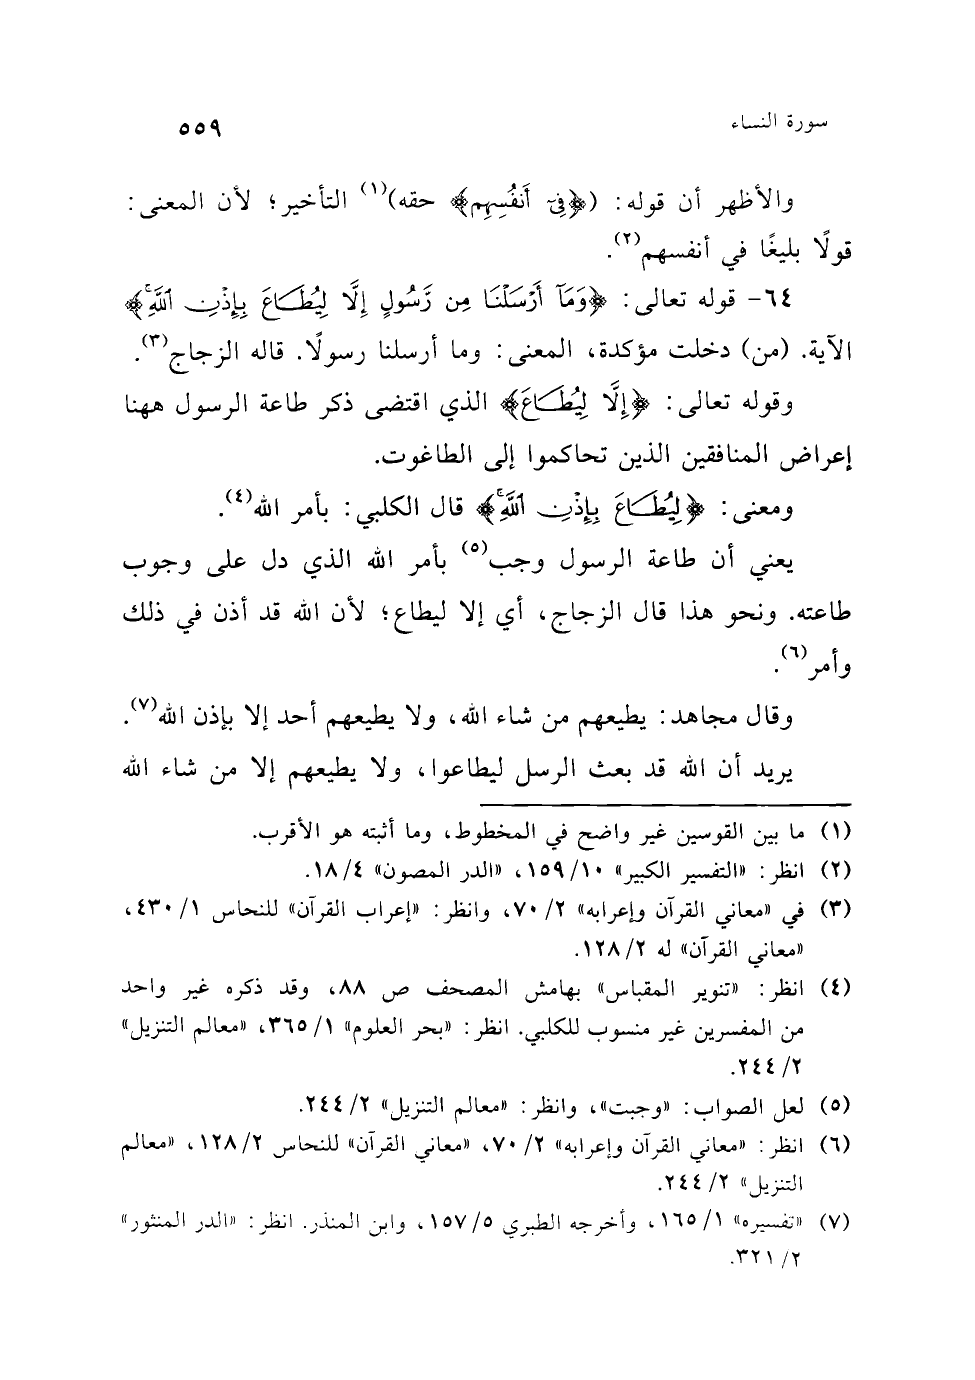 سورة النساء ٥٥٩
والأظهر أن قوله: (﴿فِىٓ أَنفُسِهِمْ﴾ حقه)(١) التأخير؛ لأن المعنى:
قولًا بليغًا في أنفسهم(٢).
٦٤- قوله تعالى: ﴿وَمَآ أَرْسَلْنَا مِن رَّسُولٍ إِلَّا لِيُطَاعَ بِإِذْنِ ٱللَّهِۚ﴾
الآية. (من) دخلت مؤكدة، المعنى: وما أرسلنا رسولًا. قاله الزجاج(٣).
وقوله تعالى: ﴿إِلَّا لِيُطَاعَ﴾ الذي اقتضى ذكر طاعة الرسول ههنا
إعراض المنافقين الذين تحاكموا إلى الطاغوت.
ومعنى: ﴿لِيُطَاعَ بِإِذْنِ ٱللَّهِۚ﴾ قال الكلبي: بأمر الله(٤).
يعني أن طاعة الرسول وجب(٥) بأمر الله الذي دل على وجوب
طاعته. ونحو هذا قال الزجاج، أي إلا ليطاع؛ لأن الله قد أذن في ذلك
وأمر(٦).
وقال مجاهد: يطيعهم من شاء الله، ولا يطيعهم أحد إلا بإذن الله(٧).
يريد أن الله قد بعث الرسل ليطاعوا، ولا يطيعهم إلا من شاء الله
(١) ما بين القوسين غير واضح في المخطوط، وما أثبته هو الأقرب.
(٢) انظر: «التفسير الكبير» ١٠/ ١٥٩، «الدر المصون» ٤/ ١٨.
(٣) في «معاني القرآن وإعرابه» ٢/ ٧٠، وانظر: «إعراب القرآن» للنحاس ١/ ٤٣٠،
«معاني القرآن» له ٢/ ١٢٨.
(٤) انظر: «تنوير المقباس» بهامش المصحف ص ٨٨، وقد ذكره غير واحد
من المفسرين غير منسوب للكلبي. انظر: «بحر العلوم» ١/ ٣٦٥، «معالم التنزيل»
٢/ ٢٤٤.
(٥) لعل الصواب: «وجبت»، وانظر: «معالم التنزيل» ٢/ ٢٤٤.
(٦) انظر: «معاني القرآن وإعرابه» ٢/ ٧٠، «معاني القرآن» للنحاس ٢/ ١٢٨، «معالم
التنزيل» ٢/ ٢٤٤.
(٧) «تفسيره» ١/ ١٦٥، وأخرجه الطبري ٥/ ١٥٧، وابن المنذر. انظر: «الدر المنثور»
٢/ ٣٢١.